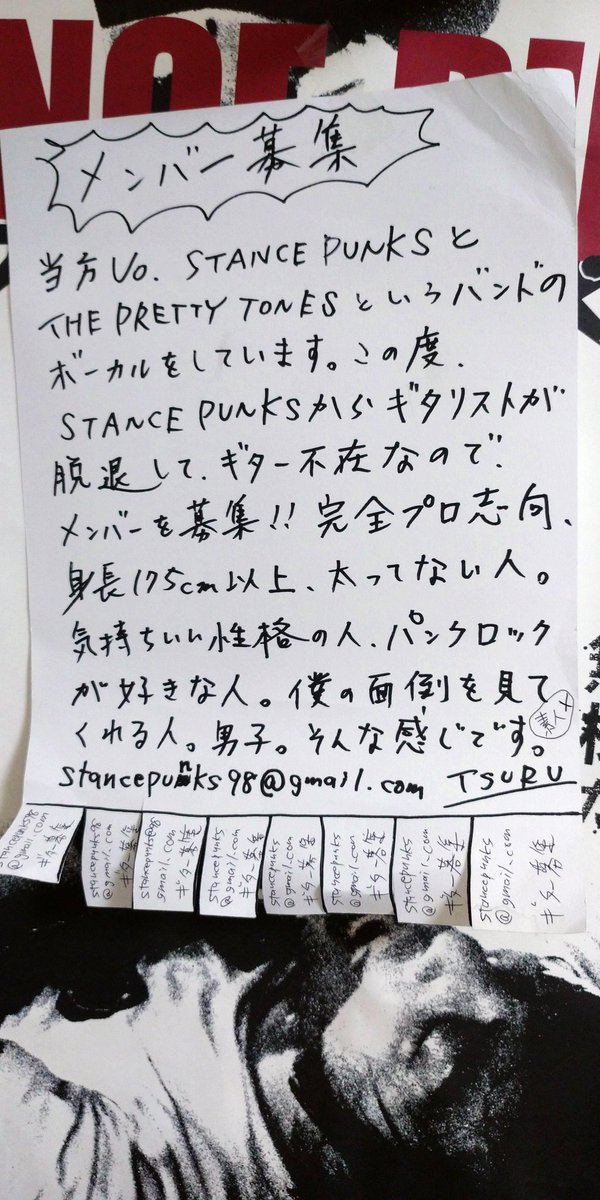 メンバー募集
当方Vo. STANCE PUNKSと
THE PRETTY TONESというバンドの
ボーカルをしています。この度、
STANCE PUNKSからギタリストが
脱退して、ギター不在なので、
メンバーを募集!! 完全プロ志向、
身長175cm以上、太ってない人。
気持ちいい性格の人、パンクロック
が好きな人。僕の面倒を見て
くれる人。男子。そんな感じです。
素人×
stancepunks98@gmail.com TSURU
stancepunks
@gmail.com
ギター募集
stancepunks
@gmail.com
ギター募集
stancepunks
@gmail.com
ギター募集
stancepunks
@gmail.com
ギター募集
stancepunks
@gmail.com
ギター募集